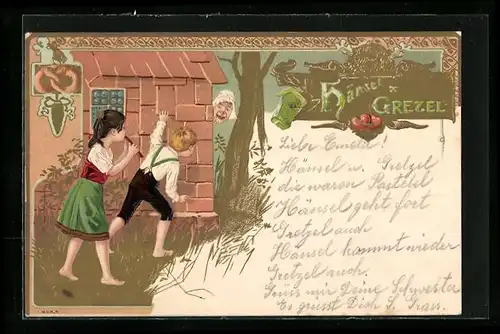 Hänsel &
GRETEL
Liebe
Hänsel u. Gretzel
die waren
Hänsel geht fort
Gretzel auch
Hänsel kommt wieder
Gretzel auch.
Grüss mir Deine Schwester
Es grüsst Dich